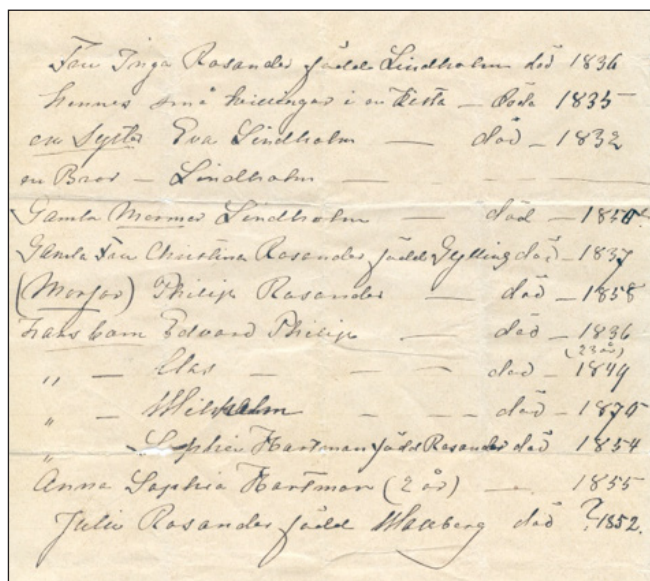 Fru Inga Rosander född Lindholm död 1836
hennes små tvillingar i en kista — döda 1835
en Syster Eva Lindholm — död — 1832
en Bror — Lindholm — — — —
Gamla Mormor Lindholm — död — 1850
Gamla Fru Christina Rosander född Gylling död — 1837
(Morfar) Philip Rosander — död — 1858
hans barn Edvard Philip — död — 1836
(23 år)
„ — Clas — — död — 1849
„ — Wilhelm — — död — 1870
„ Sophia Hartman född Rosander död 1854
Anna Sophia Hartman (2 år) — 1855
Julie Rosander född död ? 1852.